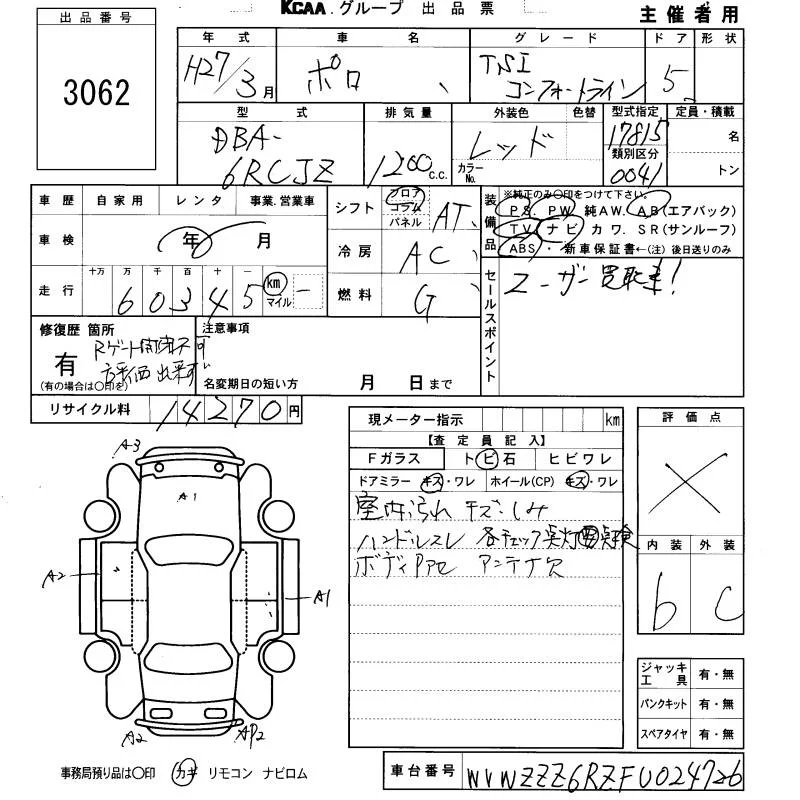 KCAA.グループ 出品票
主催者用
出品番号
3062
年式 車名 グレード ドア 形状
H27/3月 ポロ TSI コンフォートライン 5
型式 排気量 外装色 色替 型式指定 定員・積載
DBA-6RCJZ 1200c.c. レッド カラーNo. 17815 名
類別区分
0041 トン
車歴 自家用 レンタ 事業.営業車
シフト フロア コラム パネル AT
装備品 ※純正のみ○印をつけて下さい。
PS. PW 純AW. AB(エアバック)
TV. ナビ カワ. SR(サンルーフ)
ABS ・新車保証書←(注) 後日送りのみ
車検 年 月
冷房 AC
走行 十万 万 千 百 十 一
60345 km マイル
燃料 G
セールスポイント
ユーザー買取車!
修復歴 箇所
有
(有の場合は○印を)
Rゲート開閉不可
注意事項
名変期日の短い方 月 日まで
リサイクル料 14270円
現メーター指示 km
【査定員記入】
Fガラス トビ石 ヒビワレ
ドアミラー キズ・ワレ ホイール(CP) キズ・ワレ
室内汚れ キズ.しみ
ハンドルスレ 各チェック
ボディPアセ アンテナ欠
評価点
内装 外装
b C
ジャッキ工具 有・無
パンクキット 有・無
スペアタイヤ 有・無
A3
A1
A2
A1
A2
AP2
事務局預り品は○印 カギ リモコン ナビロム
車台番号 WVWZZZ6RZFU024726